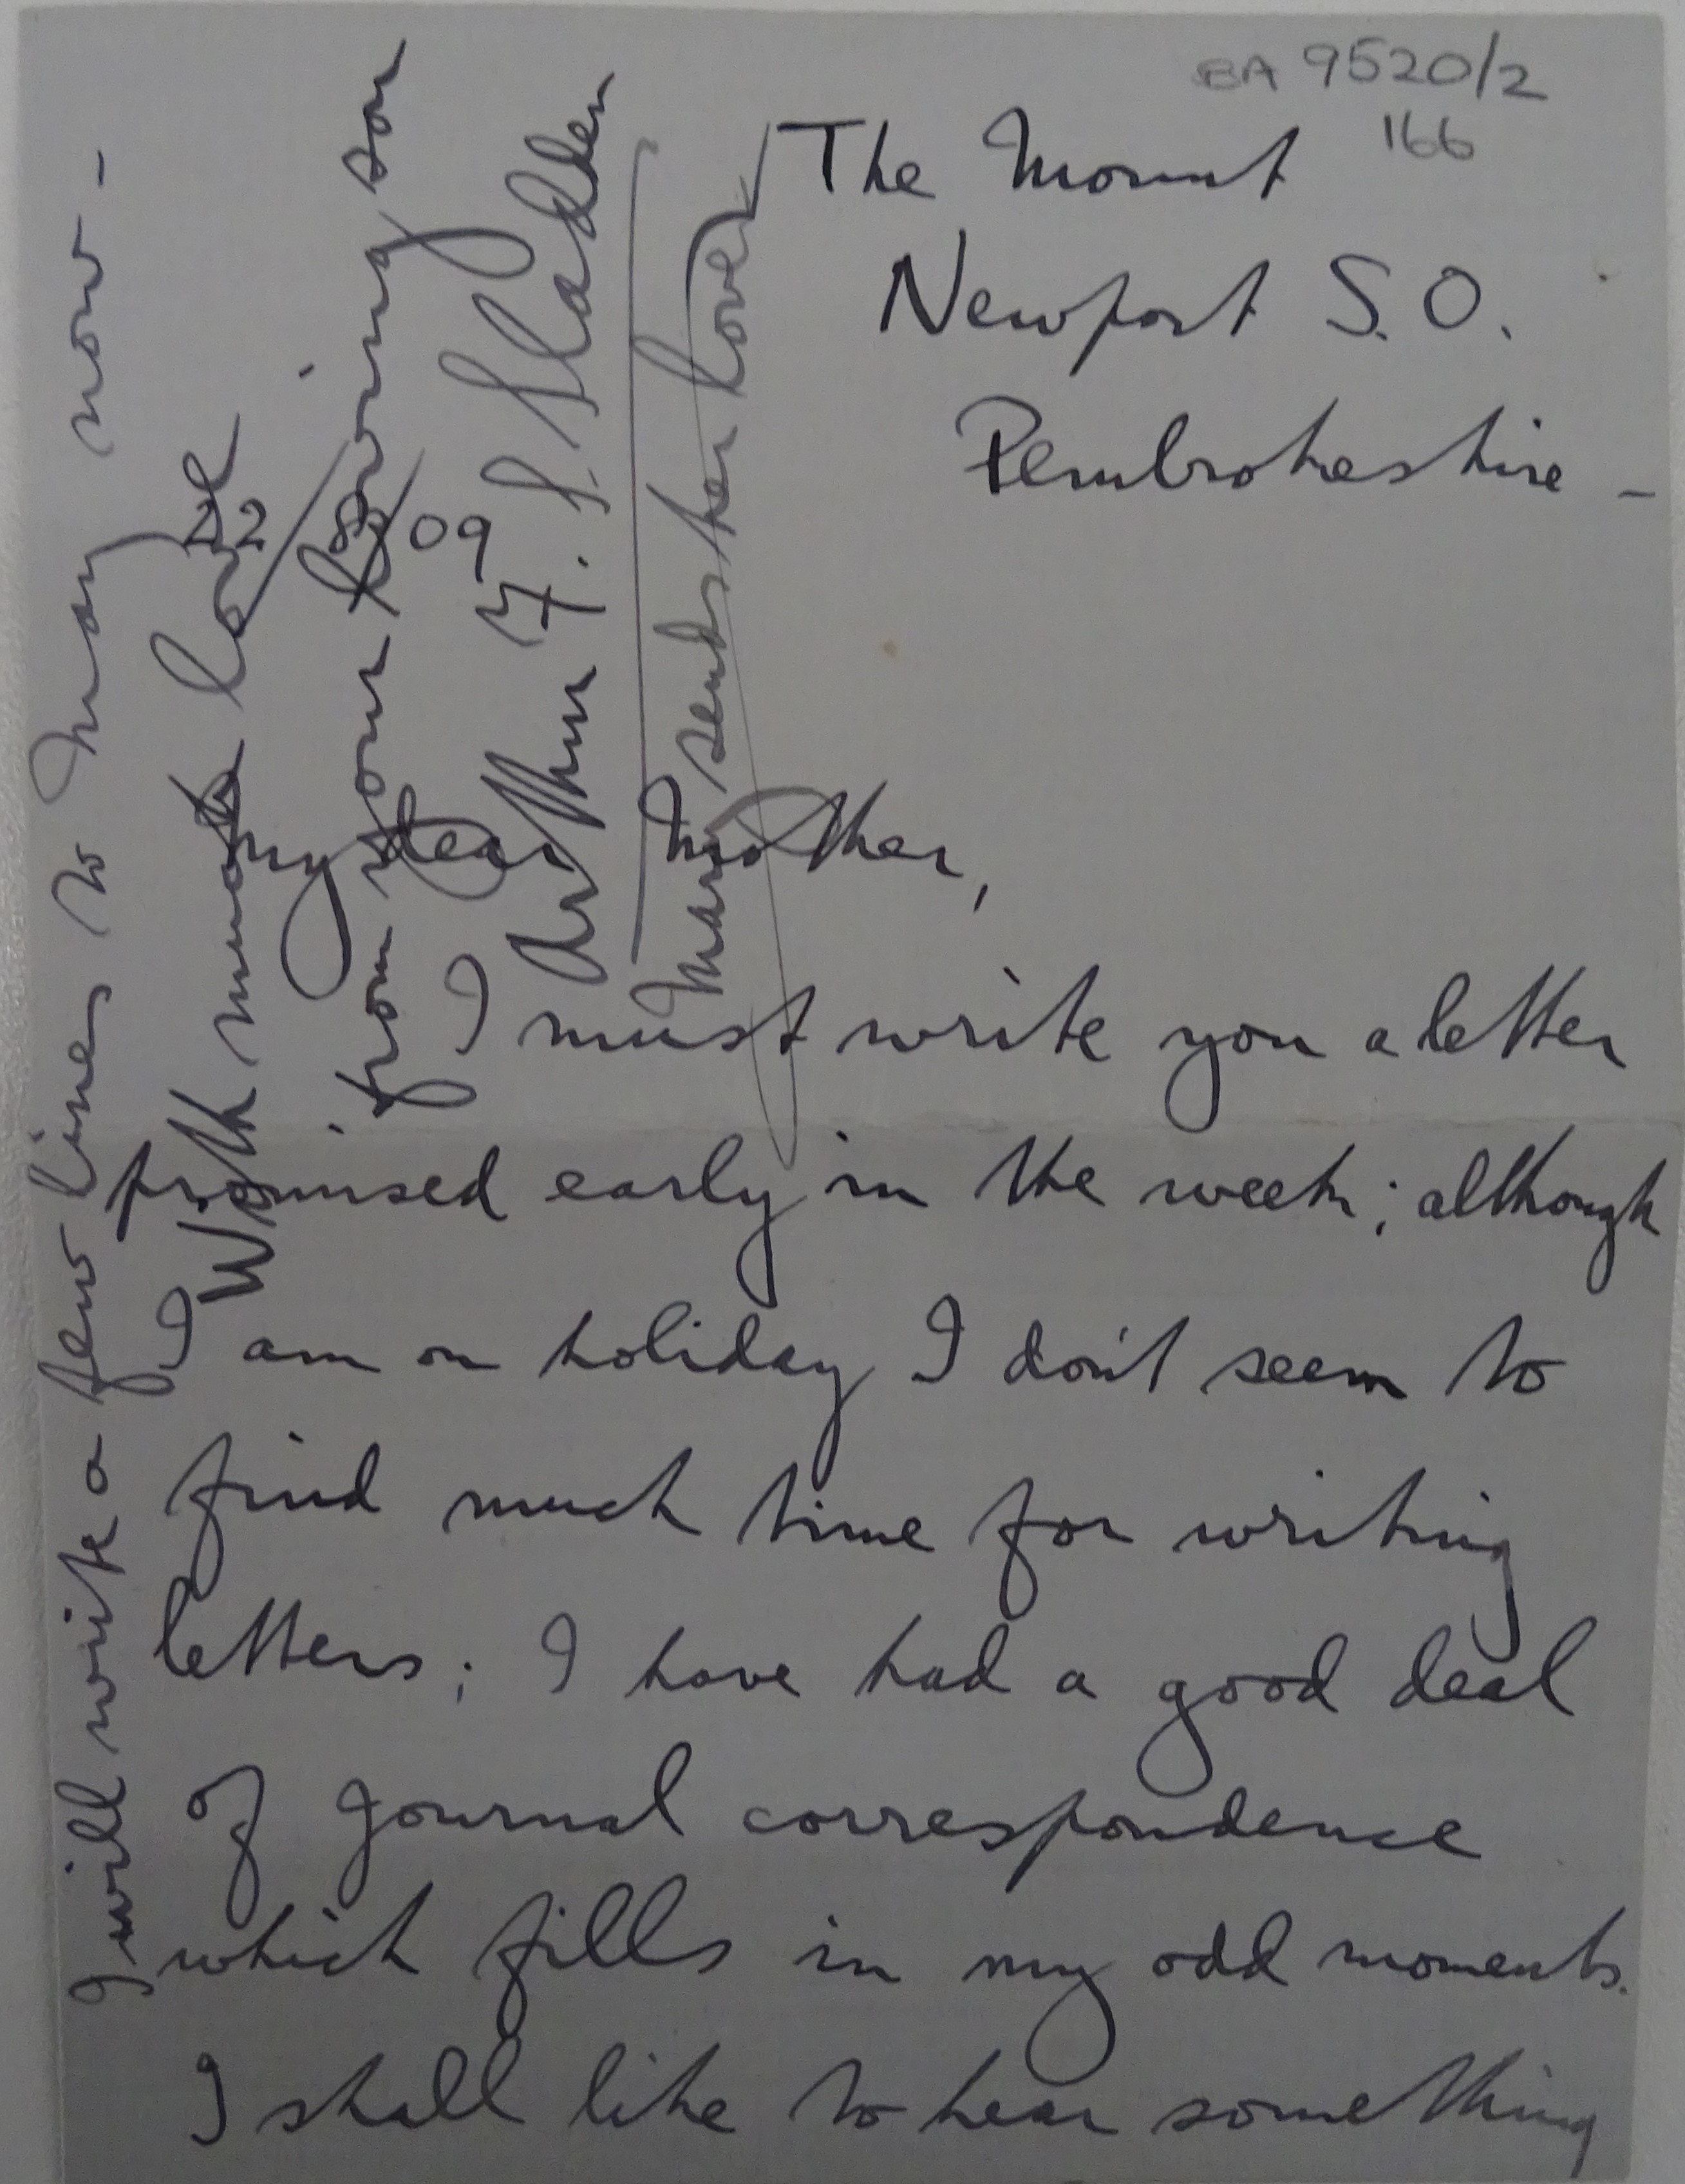 BA 9520/2
166
The Mount
Newport S.O.
Pembrokeshire -
22/8/09
My dear Mother,
I must write you a letter
promised early in the week; although
I am on holiday I don't seem to
find much time for writing
letters; I have had a good deal
of Journal correspondence
which fills in my odd moments.
I shall like to hear something
I will write a few lines to May now -
With much love
from your loving son
Arthur F. S. Sladden
Mary sends her love